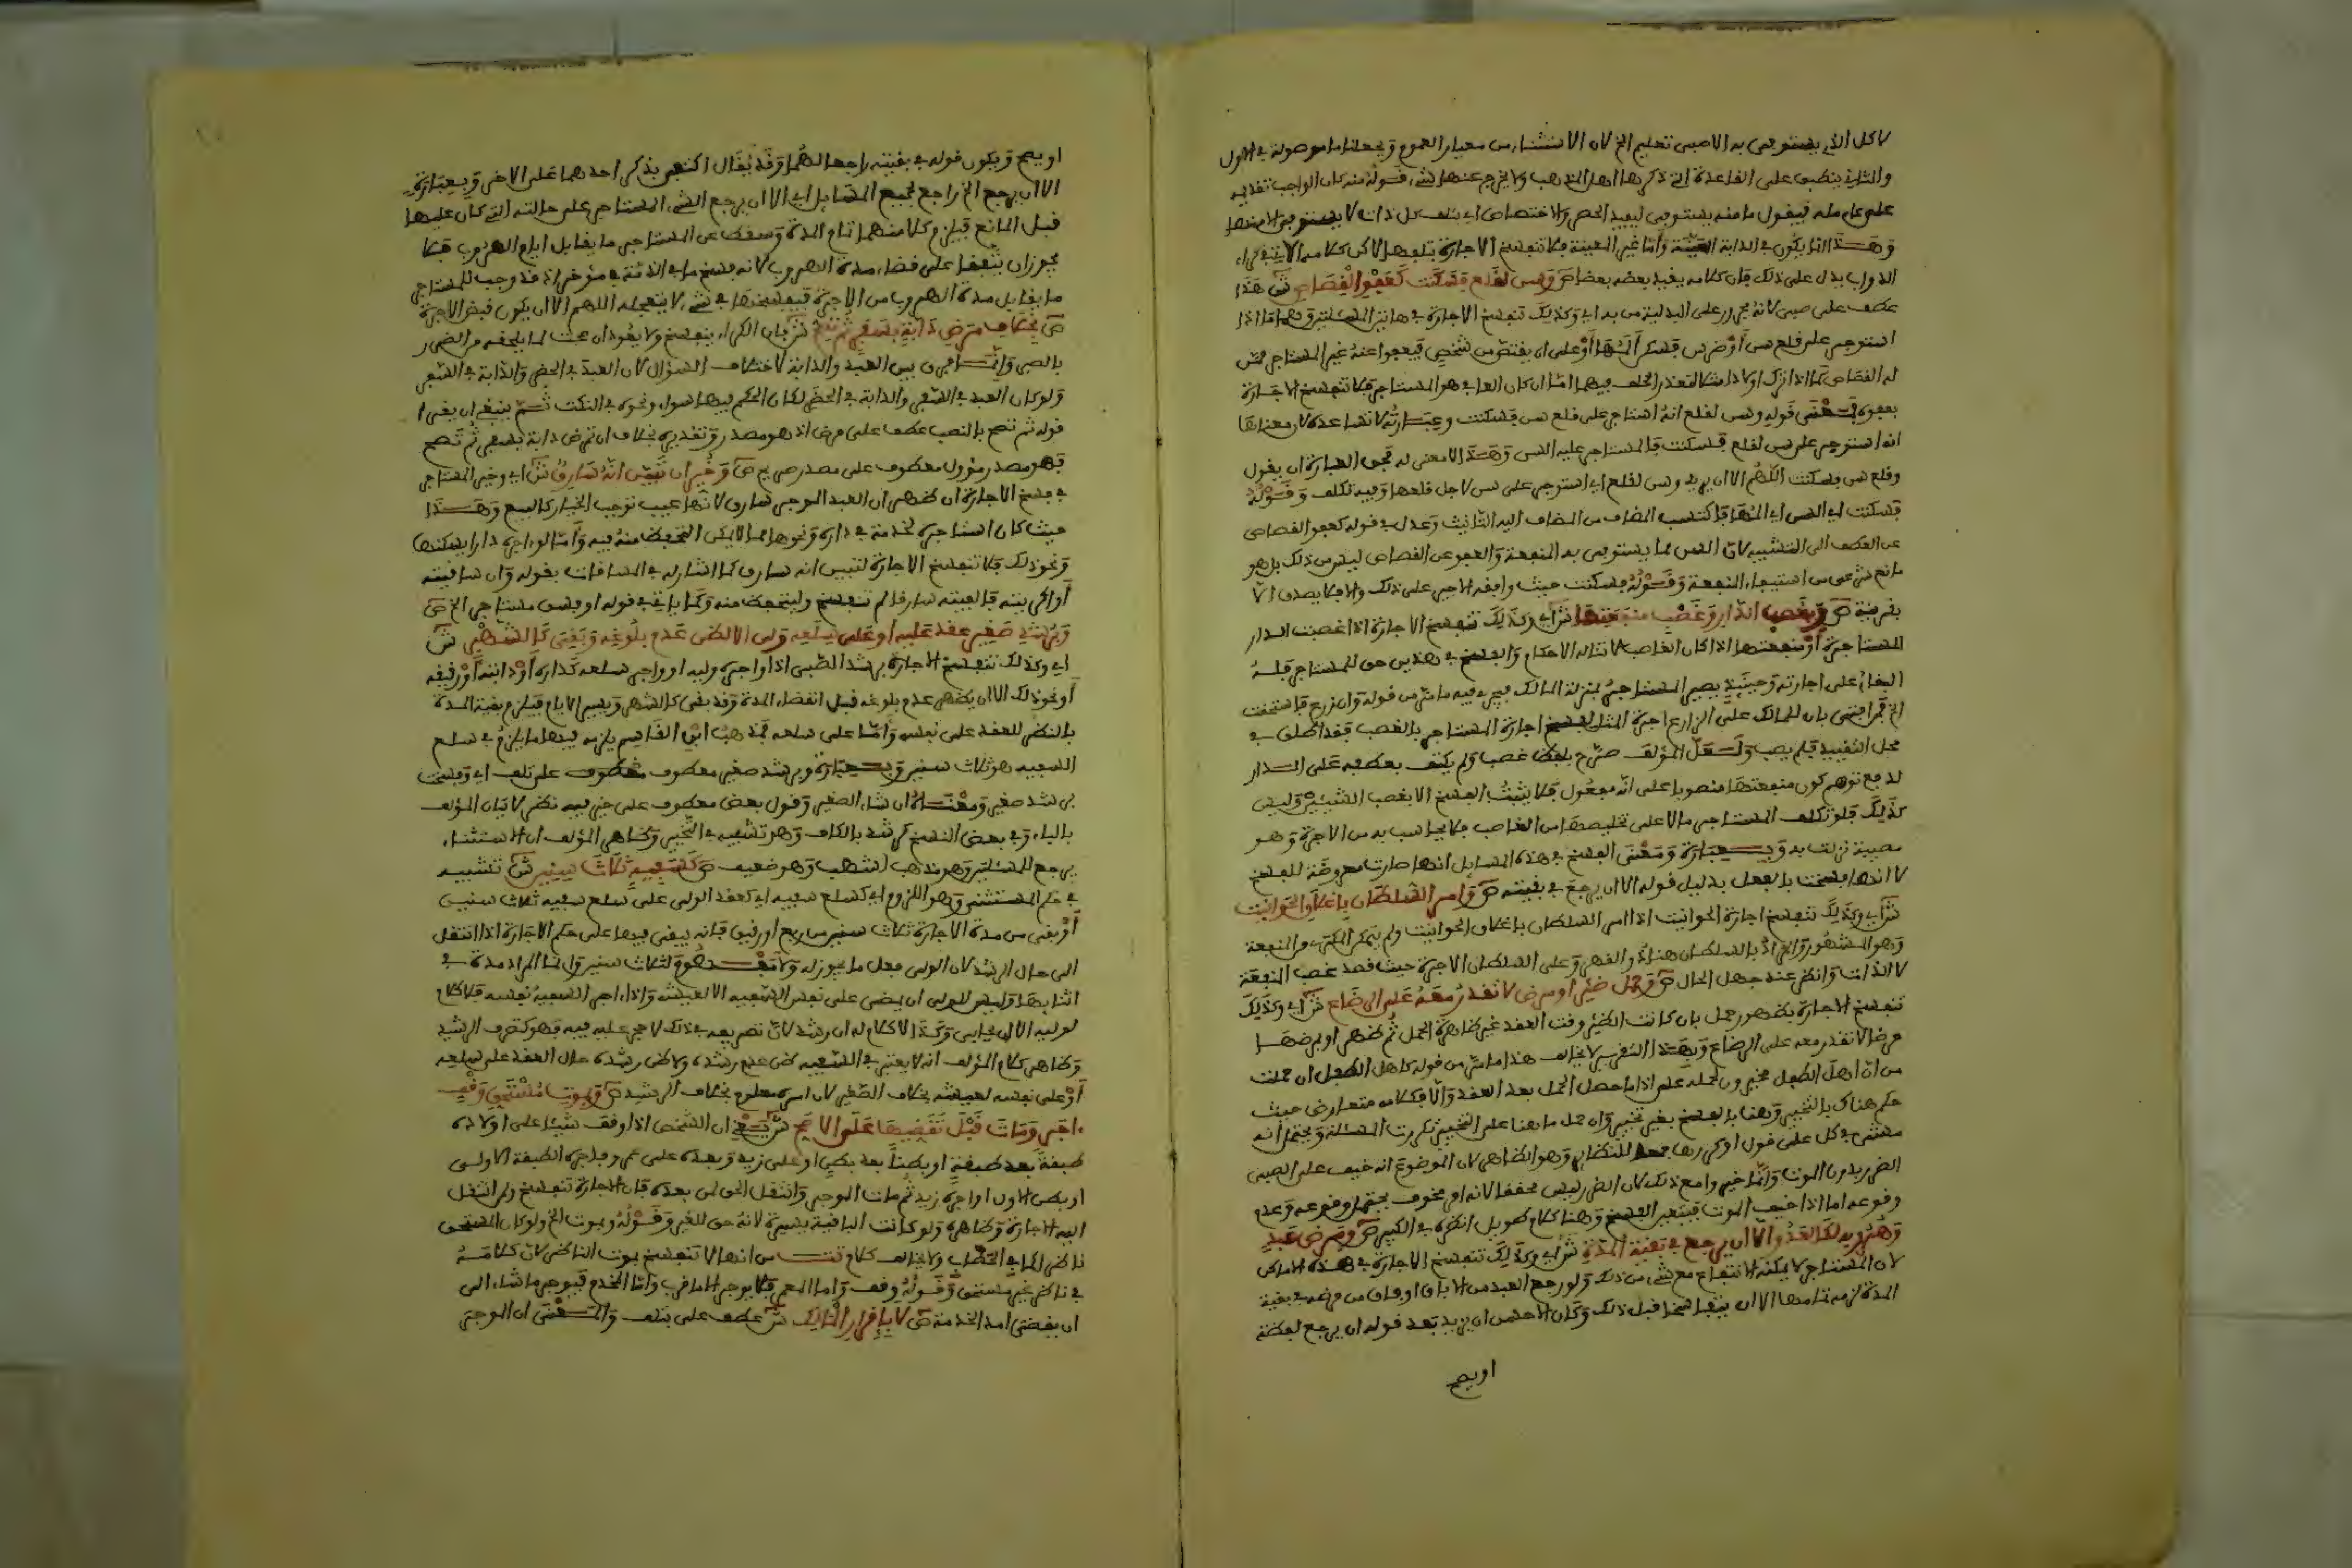 لا كل الذي يستوفى به الا صبى تعليم الخ لان الاستثناء من معيار العموم ويجعلنا ما موصولة في الاول
والثاني ينطبق على القاعدة التي ذكرها اهل المذهب ولا يخرج عنها شيء قوله منه كان الواجب تقديمه
على عامله فيقول ما منه يستوفى ليفيد الحصر والاختصاص اي بتلف كل ذات لا يستوفى الا منها
وهذا انما يكون في الدابة المعينة واما غير المعينة فلا تنفسخ الاجارة بتلفها لاكن كلامه الاتي في كراء
الدواب يدل على ذلك فان كلامه يفيد بعضه بعضا ص وسن لقلع فسكنت كعفو القصاص ش هذا
عطف على صبي لانه مجرور على البدلية من به اي وكذلك تنفسخ الاجارة في هاتين المسئلتين وهما اذا
استوجر على قلع سن او ضرس فسكن المها او على ان يقتص من شخص فيعفوا عنه غير المستاجر ممن
له القصاص كما اذا ترك اولادا مثلا لتعذر الخلف فيهما اما ان كان العافي هو المستاجر فلا تنفسخ الاجارة
بعفوه فمعنى قوله وسن لقلع انه استاجر على قلع سن فسكنت وعبارته لا تساعده لان معناها
انه استوجر على سن لقلع فسكنت فالمستاجر عليه السن وهذا لا معنى له فحق العبارة ان يقول
وقلع سن فسكنت اللهم الا ان يريد وسن لقلع اي استوجر على سن لاجل قلعها وفيه تكلف وقوله
فسكنت اي السن اي المها فاكتسب المضاف من المضاف اليه التانيث وعدل في قوله كعفو القصاص
عن العطف الى التشبيه لان السن مما يستوفى به المنفعة والعفو عن القصاص ليس من ذلك بل هو
مانع شرعي من استيفاء المنفعة وقوله فسكنت حيث وافقه الاجير على ذلك والا فلا يصدق الا
بقرينة ص وبغصب الدار وغصب منفعتها ش اي وكذلك تنفسخ الاجارة اذا غصبت الدار
المستاجرة او منفعتها اذا كان الغاصب لا تناله الاحكام والفسخ في هذين حق للمستاجر فله
البقاء على اجارته وحينئذ يصير المستاجر بمنزلة المالك فيجري فيه ما مر من قوله وان زرع فاستحقت
الخ فمن افتى بان للمالك على الزارع اجرة المثل لفسخ اجارة المستاجر بالغصب فقد اطلق في
محل التقييد فلم يصب ولعل المؤلف صرح بلفظ غصب ولم يكتف بعطفه على الدار
لدفع توهم كون منفعتها منصوبا على انه مفعول فلا يثبت الفسخ الا بغصب الشيئين وليس
كذلك فلو تكلف المستاجر مالا على تخليصها من الغاصب فلا يحاسب به من الاجرة وهو
مصيبة نزلت به وبعبارة ومعنى الفسخ في هذه المسايل انها صارت معروضة للفسخ
لا انها فسخت بالفعل بدليل قوله الا ان يرجع في بقيته ص وامر السلطان باغلاق الحوانيت
ش اي وكذلك تنفسخ اجارة الحوانيت اذا امر السلطان باغلاق الحوانيت ولم يتمكن المكتري من المنفعة
وهو المشهور والمراد بالسلطان هنا ذو القهر وعلى السلطان الاجرة حيث قصد غصب المنفعة
لا الذات وانظر عند جهل الحال ص وحمل ظئر او مرض لا تقدر معه على الرضاع ش اي وكذلك
تنفسخ الاجارة بظهور حمل بان كانت الظئر وقت العقد غير ظاهرة الحمل ثم ظهر او بمرضها
مرضا لا تقدر معه على الرضاع وبهذا التقرير لا يخالف هذا ما مر من قوله كاهل الطفل ان حملت
من ان اهل الطفل مخيرون لحمله على اذا ما حصل الحمل بعد العقد والا فكلامه متعارض حيث
حكم هناك بالتخيير وهنا بالفسخ بغير تخيير وان حمل ما هنا على التخيير تكررت المسئلة ويحتمل انه
مشى في كل على قول او كررها جمعا للنظاير وهو الظاهر لان الموضوع انه خيف على الصبي
الضرر بدون الموت وانما خير وامع ذلك لان الضرر ليس محققا لانه امر مخوف يحتمل وقوعه وعدم
وقوعه اما اذا خيف الموت فيتعين الفسخ وهنا كلام طويل انظره في الكبير ص ومرض عبد
وهربه لكالعدو الا ان يرجع في بقية المدة ش اي وكذلك تنفسخ الاجارة في هذه الاماكن
لان المستاجر لا يمكنه الانتفاع مع شيء من ذلك ولو رجع العبد من الاباق او فاق من مرضه في بقية
المدة لزمه تمامها الا ان يتفاسخا قبل ذلك وكان الاحسن ان يزيد بعد قوله ان يرجع لفظة
او يصح
او يصح ويكون قوله في بقيته راجعا لهما وقد يقال اكتفى بذكر احدهما على الاخر وبعبارة
الا ان يرجع الخ راجع لجميع المسايل اي الا ان يرجع الشيء المستاجر على حالته التي كان عليها
قبل المانع فيلزم كلا منهما تمام المدة ويسقط عن المستاجر ما يقابل ايام الهروب فلا
يجوز ان يتفقا على قضاء مدة الهروب لانه فسخ ما في الذمة في مؤخر اذ قد وجب للمستاجر
ما يقابل مدة الهروب من الاجرة فيفسخها في شيء لا يتعجله اللهم الا ان يكون قبض الاجرة
ص بخلاف مرض دابة بسفر ثم تصح ش فان الكراء ينفسخ ولا يعود ان صحت لما يلحقه من الضرر
بالصبر وانما فرق بين العبد والدابة لاختلاف السؤال لان العبد في الحضر والدابة في السفر
ولو كان العبد في السفر والدابة في الحضر لكان الحكم فيهما سواء ونحوه في النكت ثم ينبغي ان يقرا
قوله ثم تصح بالنصب عطف على مرض اذ هو مصدر وتقديره بخلاف ان تمرض دابة بسفر ثم تصح
فهو مصدر مؤول معطوف على مصدر صريح ص وخير ان تبين انه سارق ش اي وخير المستاجر
في فسخ الاجارة ان ظهر ان العبد الموجر سارق لانها عيب توجب الخيار كالبيع وهذا
حيث كان استاجره لخدمة في داره ونحوها مما لا يمكن التحفظ منه فيه واما لو اجره دارا يسكنها
ونحو ذلك فلا تنفسخ الاجارة لتبين انه سارق كما اشار له في المساقات بقوله وان ساقيته
او اكريته فالفيته سارقا لم تنفسخ وليتحفظ منه وكما ياتي في قوله او فسق مستاجر الخ ص
وبرشد صغير عقد عليه او على سلعه ولي الا لظن عدم بلوغه وبقي كالشهر ش
اي وكذلك تنفسخ الاجارة برشد الصبي اذا اجره وليه او اجر سلعه كداره او دابته او رقيقه
او نحو ذلك الا ان يظهر عدم بلوغه قبل انقضاء المدة وقد بقي كالشهر ويسير الايام فيلزم بقية المدة
بالنظر للعقد على نفسه واما على سلعه فمذهب ابن القاسم يلزمه فيها ما يلزم في سلع
السفيه هو ثلاث سنين وبعبارة وبرشد صغير معطوف معطوف على تلف اي وفسخت
برشد صغير ومعناه ان شاء الصغير وقول بعض معطوف على خير فيه نظر لاتيان المؤلف
بالباء وفي بعض النسخ كرشد بالكاف وهو تشبيه في التخيير وظاهر المؤلف ان الاستثناء
يرجع للمسئلتين وهو مذهب اشهب وهو ضعيف ص كسفيه ثلاث سنين ش تشبيه
في حكم المستثنى وهو اللزوم اي كسلع سفيه اي كعقد الولي على سلع سفيه ثلاث سنين
او بقي من مدة الاجارة ثلاث سنين من ربع او رقيق فانه يبقى فيها على حكم الاجارة اذا انتقل
الى حال الرشد لان الولي فعل ما يجوز له ولا مفهوم لثلاث سنين وانما المراد مدة في
اثنايها وليس للولي ان يمضى على نفس السفيه الا لعيشه واذا اجر السفيه نفسه فلا كلام
لوليه الا ان يحابي وكذا لا كلام له ان رشد لان تصرفه في ذلك لا حجر عليه فيه فهو كتصرف الرشيد
وظاهر كلام المؤلف انه لا يعتبر في السفيه ظن عدم رشده ولا ظن رشده حال العقد على سلعه
او على نفسه لعيشه بخلاف الصغير لان امره معلوم بخلاف الرشيد ص وبموت مستحق وقف
اجر ومات قبل تقضيها على الاصح ش يعني ان الشخص اذا وقف شيئا على اولاده
طبقة بعد طبقة او بطنا بعد بطن او على زيد وبعده على عمرو فاجره الطبقة الاولى
او بطن الاول او اجره زيد ثم مات الموجر وانتقل الحق لمن بعده فان الاجارة تنفسخ ولو انتقل
اليه الاجارة وظاهره ولو كانت الباقية يسيرة لانه حق للغير وقوله وبموت الخ ولو كان المستحق
ناظرا كما في الحطاب ولا يخالف كلام تت من انها لا تنفسخ بموت الناظر لان كلامه
في ناظر غير مستحق وقوله وقف واما المعمر فلا يوجر الا ما قرب واما المخدم فيوجر ما شاء الى
ان يقضي امد الخدمة ص لا باقرار المالك ش عطف على بتلف والمعنى ان الموجر